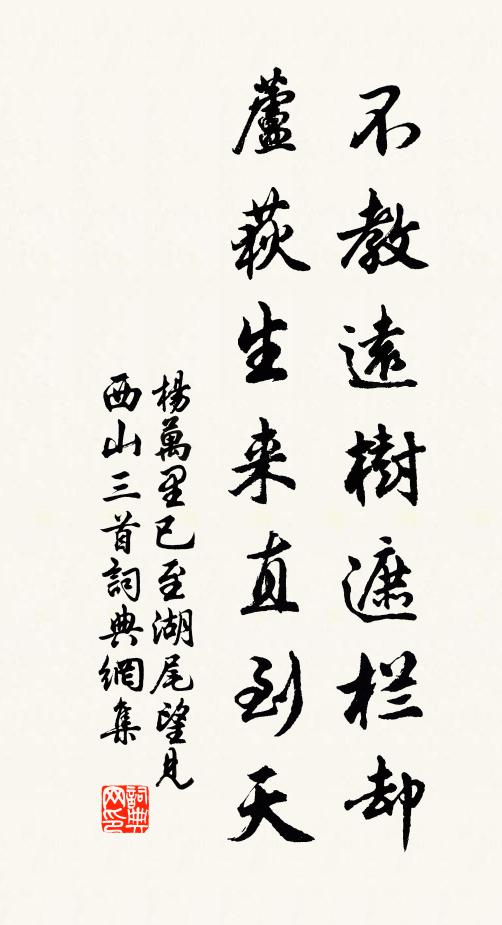 不教遠樹遮栏却
蘆荻生来直到天
楊萬里已至湖尾望見
西山三首詞典網集
詞典
网印